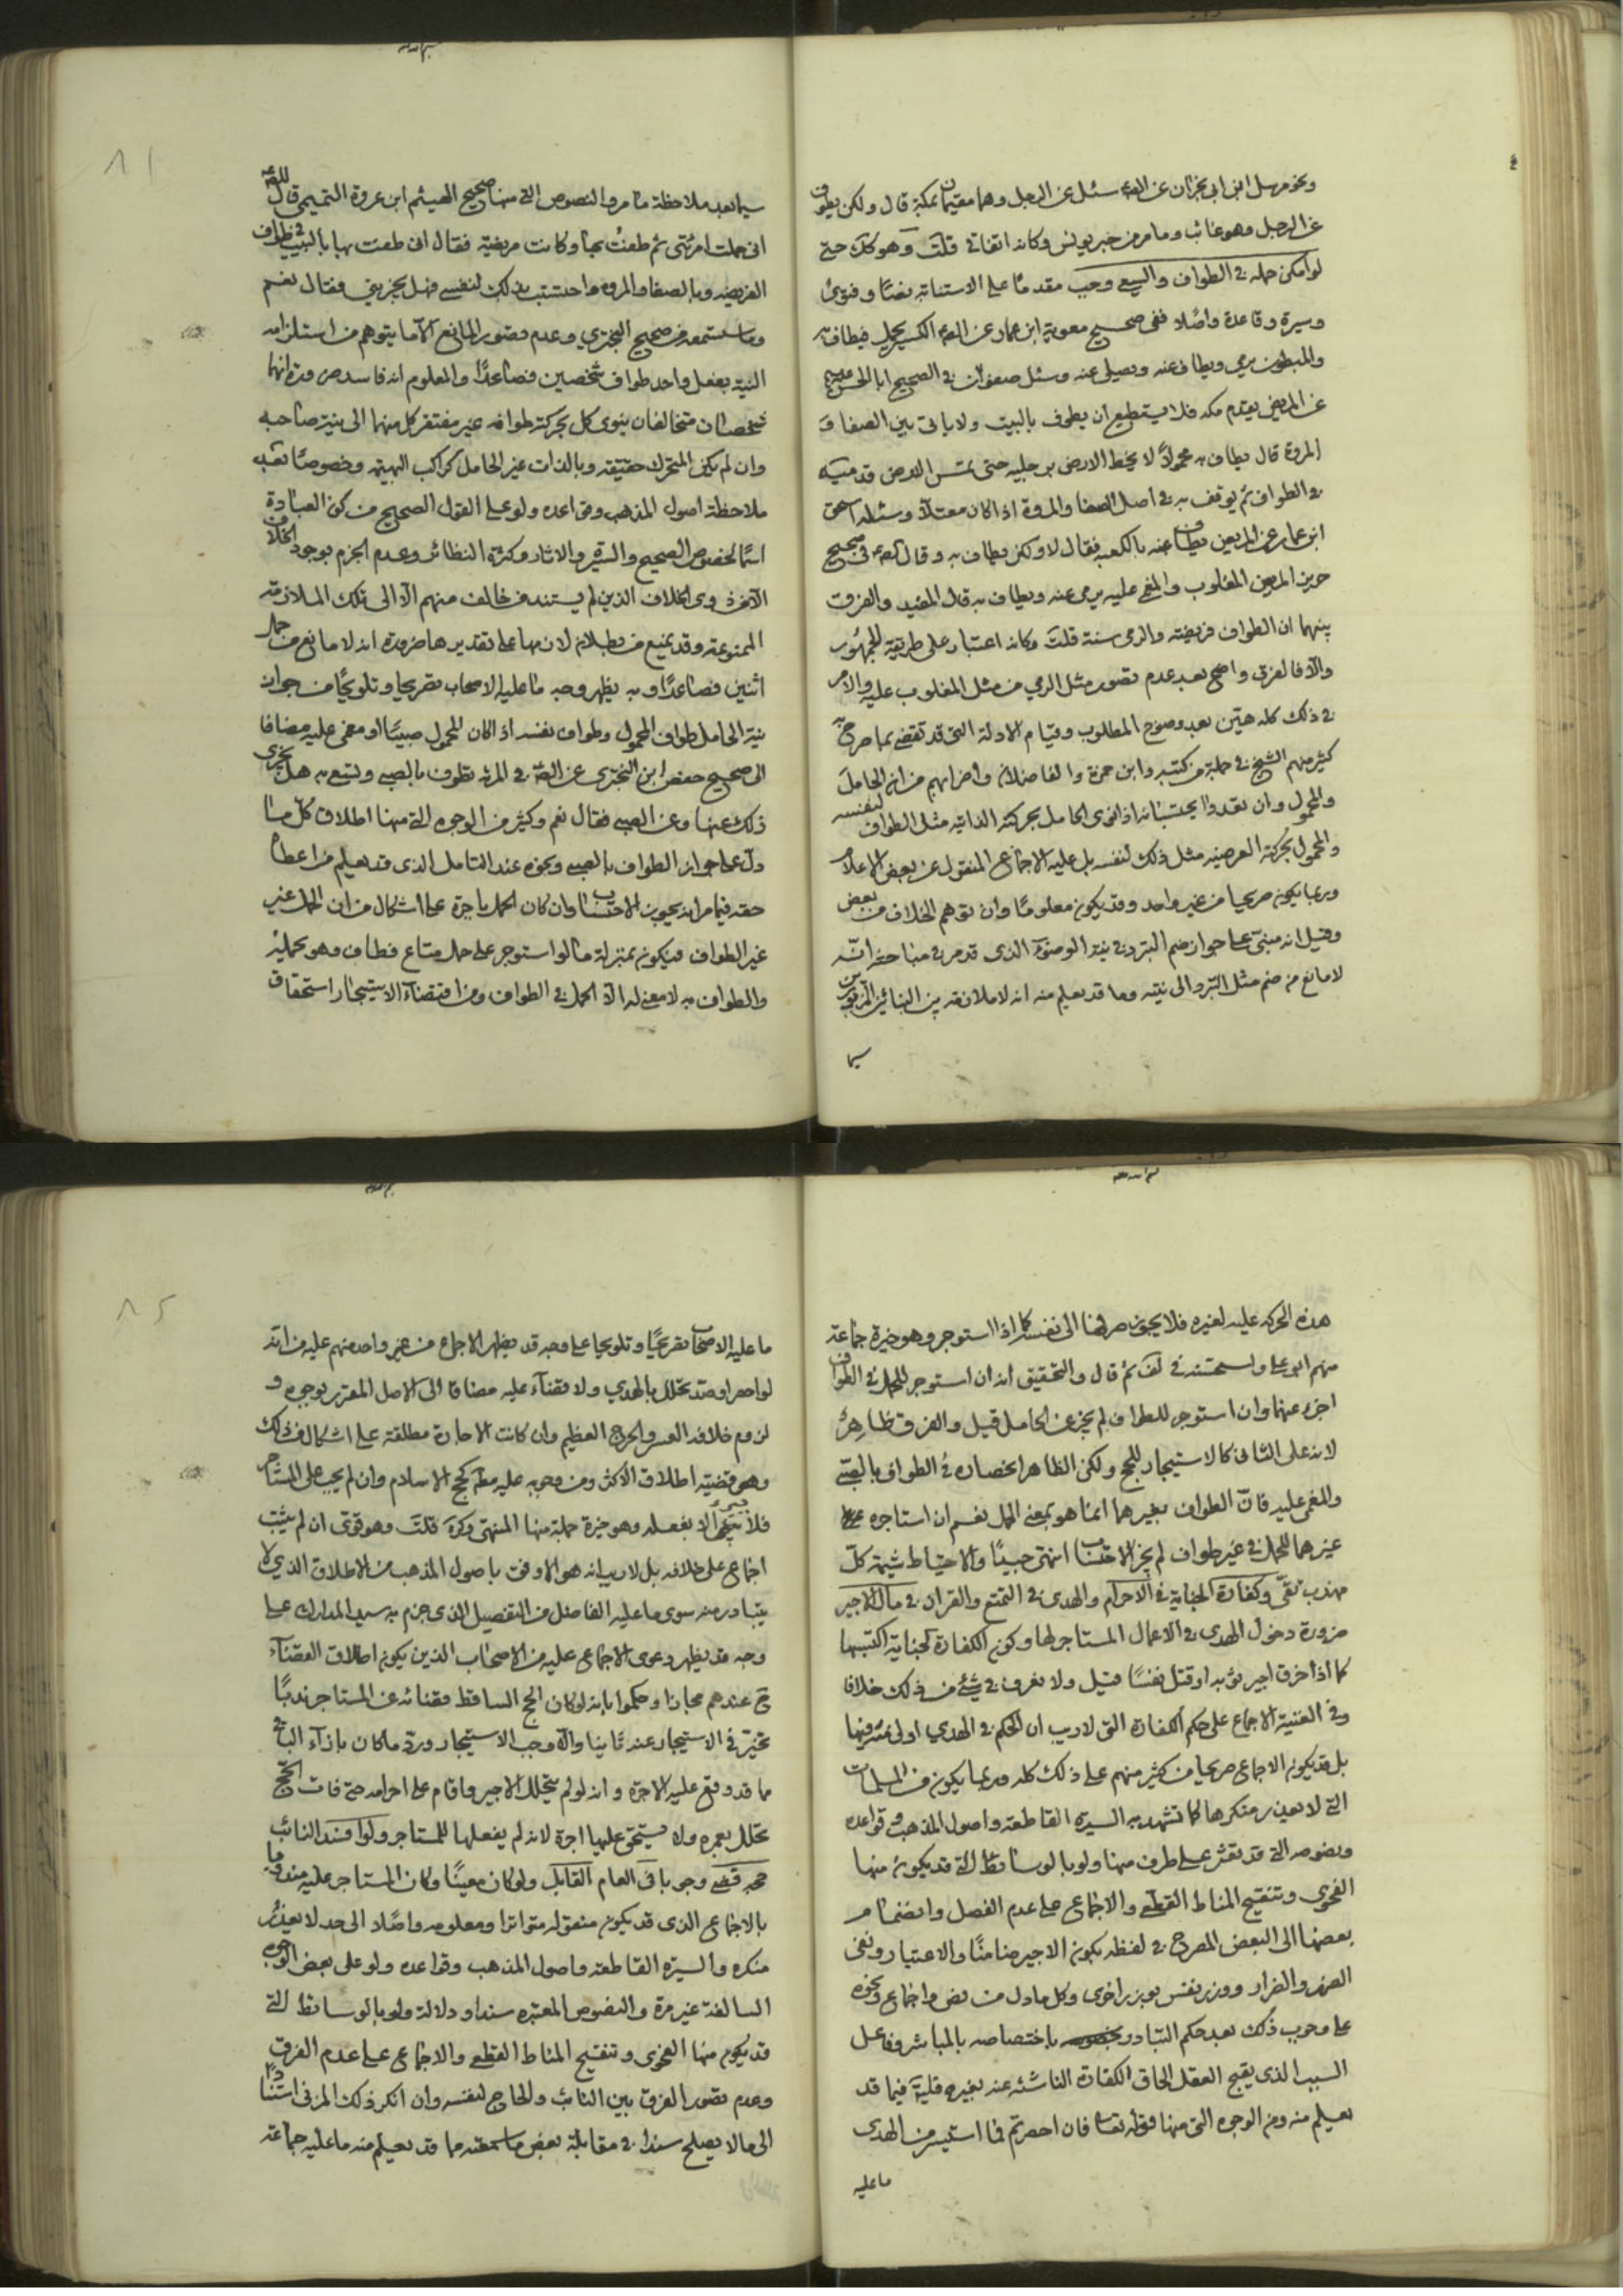 ونحو مرسل ابن ابى نجران عن الص سئل عن الرجل وهما مقيمان بمكة قال ولكن يطوف
عن الرجل وهو غائب وما مر من خبر يونس وكانه اتفاقى قلت وهو كك حتى
لو امكن حمله فى الطواف والسعى وجب مقدما على الاستنابة نصا وفتوى
وسيرة وقاعدة واصلا ففى صحيح معوية ابن عمار عن الص الكسير يحمل فيطاف به
والمبطون يرمى ويطاف عنه ويصلى عنه وسئل صفوان فى الصحيح ابا الحسن
عن المريض يقدم مكة فلا يستطيع ان يطوف بالبيت ولا ياتى بين الصفا و
المروة قال يطاف به محمولا لا يخط الارض برجليه حتى تمس الارض قدميه
فى الطواف ثم يوقف به فى اصل الصفا والمروة اذا كان معتلا وسئله اسحق
ابن عمار عن المريض يطاف عنه بالكعبة فقال لا ولكن يطاف به وقال الص فى صحيح
حريز المريض المغلوب والمغمى عليه يرمى عنه ويطاف به قال المفيد والفرق
بينهما ان الطواف فريضة والرمى سنة قلت وكانه اعتبار على طريقة الجمهور
والا فالفرق واضح بعد عدم تصور مثل الرمى من مثل المغلوب عليه والامر
فى ذلك كله هين بعد وضوح المطلوب وقيام الادلة التى قد تقضى بما صرح به
كثير منهم الشيخ فى جملة من كتبه وابن حمزة والفاضلان واضرابهم من ان الحامل
والمحمول وان تعددا يحتسبانه اذا نوى الحامل بحركته الذاتية مثل الطواف لنفسه
والمحمول بحركته العرضية مثل ذلك لنفسه بل عليه الاجماع المنقول عن بعض الاعلام
وربما يكون صريحا من غير واحد وقد يكون معلوما وان توهم الخلاف من بعض
وقيل انه مبنى على جواز ضم التبرد فى نية الوضوء الذى قد مر فى مباحثه انه
لا مانع من ضم مثل التبرد الى نيته وما قد يعلم منه انه لا ملازمة بين البنائين المزبورين
سيما
سيما بعد ملاحظة ما مر والنصوص التى منها صحيح الهيثم ابن عروة التميمى قال للص
انى حملت امرئتى ثم طفت بها وكانت مريضة فقال انى طفت بها بالبيت فى طواف
الفريضة وبالصفا والمروة واحتسبت بذلك لنفسى فهل يجزينى فقال نعم
وما ستسمعه من صحيح البخترى وعدم تصور المانع الا ما يتوهم من استلزامه
النية بفعل واحد طواف شخصين فصاعدا والمعلوم انه فاسد ضرورة انهما
شخصان متخالفان ينوى كل بحركته طوافه غير مفتقر كل منهما الى نية صاحبه
وان لم يكن المتحرك حقيقة وبالذات غير الحامل كراكب البهيمة وخصوصا بعد
ملاحظة اصول المذهب وقواعده ولو على القول الصحيح من كون العبادة
اسما لخصوص الصحيح والسيرة والاثار وكثرة النظائر وعدم الجزم بوجود الخلاف
الا من ذوى الخلاف الذين لم يستند من خالف منهم الا الى تلك الملازمة
الممنوعة وقد يمنع من بطلان لازمها على تقديرها ضرورة انه لا مانع من حمل
اثنين فصاعدا وبه يظهر وجه ما عليه الاصحاب تصريحا وتلويحا من جواز
نية الحامل طواف المحمول وطواف نفسه اذا كان المحمول صبيا او مغمى عليه مضافا
الى صحيح حفص ابن البخترى عن الص فى المرئة تطوف بالصبى وتسعى به هل يجزى
ذلك عنها وعن الصبى فقال نعم وكثير من الوجوه التى منها اطلاق كل ما
دل على جواز الطواف بالصبى ونحوه عند التامل الذى قد يعلم من اعطاء
حقه فيما مر انه يجوز الاحتساب وان كان الحمل باجرة على اشكال من ان الحمل غير
غير الطواف فيكون بمنزلة ما لو استوجر على حمل متاع فطاف وهو يحمله
والطواف به لا معنى له الا الحمل فى الطواف ومن اقتضاء الاستيجار استحقاق
هذه الحركة عليه لغيره فلا يجوز صرفها الى نفسه كما اذا استوجر وهو خيرة جماعة
منهم ابو على واستحسنه فى لف ثم قال والتحقيق انه ان استوجر للحمل فى الطواف
اجزء عنهما وان استوجر للطواف لم يجز عن الحامل قيل والفرق ظاهر
لانه على الثانى كالاستيجار للحج ولكن الظاهر انحصاره فى الطواف بالصبى
والمغمى عليه فان الطواف بغيرهما انما هو بمعنى الحمل نعم ان استاجره
غيرهما للحمل فى غير طواف لم يجز الاحتساب انتهى جيدا والاحتياط شيمة كل
مهذب تقى وكفارة الجناية فى الاحرام والهدى فى التمتع والقران فى مال الاجير
ضرورة دخول الهدى فى الاعمال المستاجر لها وكون الكفارة لجناية اكتسبها
كما اذا خرق اجير ثوبه او قتل نفسا قيل ولا نعرف فى شئ من ذلك خلافا
وفى الغنية الاجماع على حكم الكفارة التى لا ريب ان الحكم فى الهدى اولى منه فيها
بل قد يكون الاجماع صريحا من كثير منهم على ذلك كله وربما يكون من المسلمات
التى لا يعذر منكرها كما تشهد به السيرة القاطعة واصول المذهب وقواعده
ونصوصه التى قد تعثر على طرف منها ولو بالوسائط التى قد يكون منها
الفحوى وتنقيح المناط القطعى والاجماع على عدم الفصل وانضمام
بعضها الى البعض المصرح فى لفظه بكون الاجير ضامنا والاعتبار ونفى
الضرر والضرار ووزر نفس بوزر اخرى وكل ما دل من نص واجماع ونحوه
على وجوب ذلك بعد حكم التبادر باختصاصه بالمباشر وفاعل
السبب الذى يقبح العقل الحاق الكفارة الناشئة عنه بغيره قلية فيما قد
يعلم منه ومن الوجوه التى منها قوله تعا فان احصرتم فما استيسر من الهدى
ما عليه
ما عليه الاصحاب تصريحا وتلويحا على وجه قد يظهر الاجماع من غير واحد منهم عليه من انه
لو احصر او صد تحلل بالهدى ولا قضاء عليه مضافا الى الاصل المقرر بوجوه و
لزوم خلافه العسر والحرج العظيم وان كانت الاجارة مطلقة على اشكال من ذلك
وهو قضية اطلاق الاكثر ومن وجوبه عليه مط كحج الاسلام وان لم يجب على المستاجر
فلا الا بفعله وهو خيرة جملة منها المنتهى وكره قلت وهو قوى ان لم يثبت
اجماع على خلافه بل لا ريب انه هو الاوفق باصول المذهب من الاطلاق الذى لا
يتبادر منه سوى ما عليه الفاضل من التفصيل الذى جزم به سيد المدارك على
وجه قد يظهر دعوى الاجماع عليه من الاصحاب الذين يكون اطلاق القضاء
ح عندهم مجازا وحكموا بانه لو كان الحج الساقط قضائه عن المستاجر ندبا
تخير فى الاستيجار عنه ثانيا والا وجب الاستيجار ورد ما كان بازاء الباقى
مما قد وقع عليه الاجرة وانه لو لم يتحلل الاجير واقام على احرامه حتى فات الحج
تحلل بعمرة ولا يستحق عليها اجرة لانه لم يفعلها للمستاجر ولو افسد النائب
حجه قضى وجوبا فى العام القابل ولو كان معينا وكان المستاجر عليه مندوبا
بالاجماع الذى قد يكون منقوله متواترا ومعلومه واصلا الى حد لا يعذر
منكره والسيرة القاطعة واصول المذهب وقواعده ولو على بعض الوجوه
السالفة غير مرة والنصوص المعتبرة سندا ودلالة ولو بالوسائط التى
قد يكون منها الفحوى وتنقيح المناط القطعى والاجماع على عدم الفرق
وعدم تصور الفرق بين النائب والحاج لنفسه وان انكر ذلك المزنى استنادا
الى ما لا يصلح سندا فى مقابلة بعض ما سمعته مما قد يعلم منه ما عليه جماعة